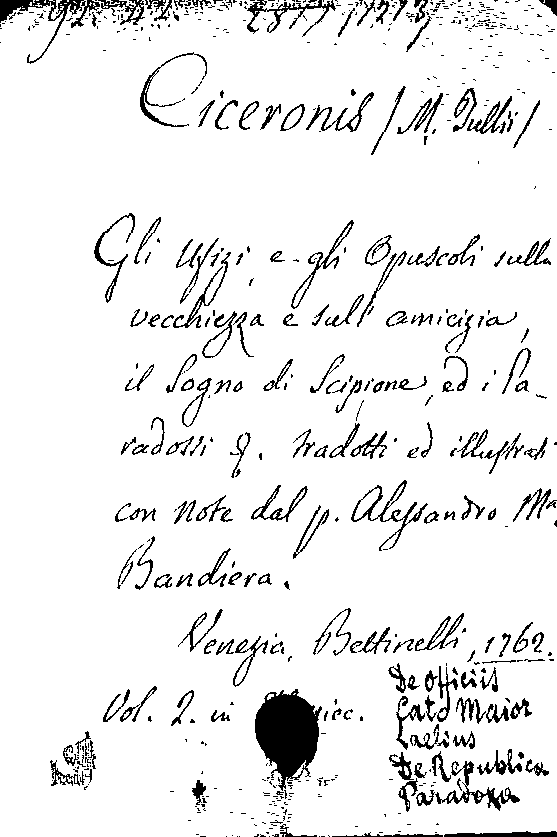 Ciceronis /M. Tullii/
Gli Ufizi, e gli Opuscoli sulla
vecchiezza e sull' amicizia,
il Sogno di Scipione, ed i Pa-
radossi &. tradotti ed illustrati
con note dal p. Alessandro Ma
Bandiera.
Venezia, Bettinelli, 1762.
Vol. 2. in
De officiis
Cato Maior
Laelius
De Republica
Paradoxa